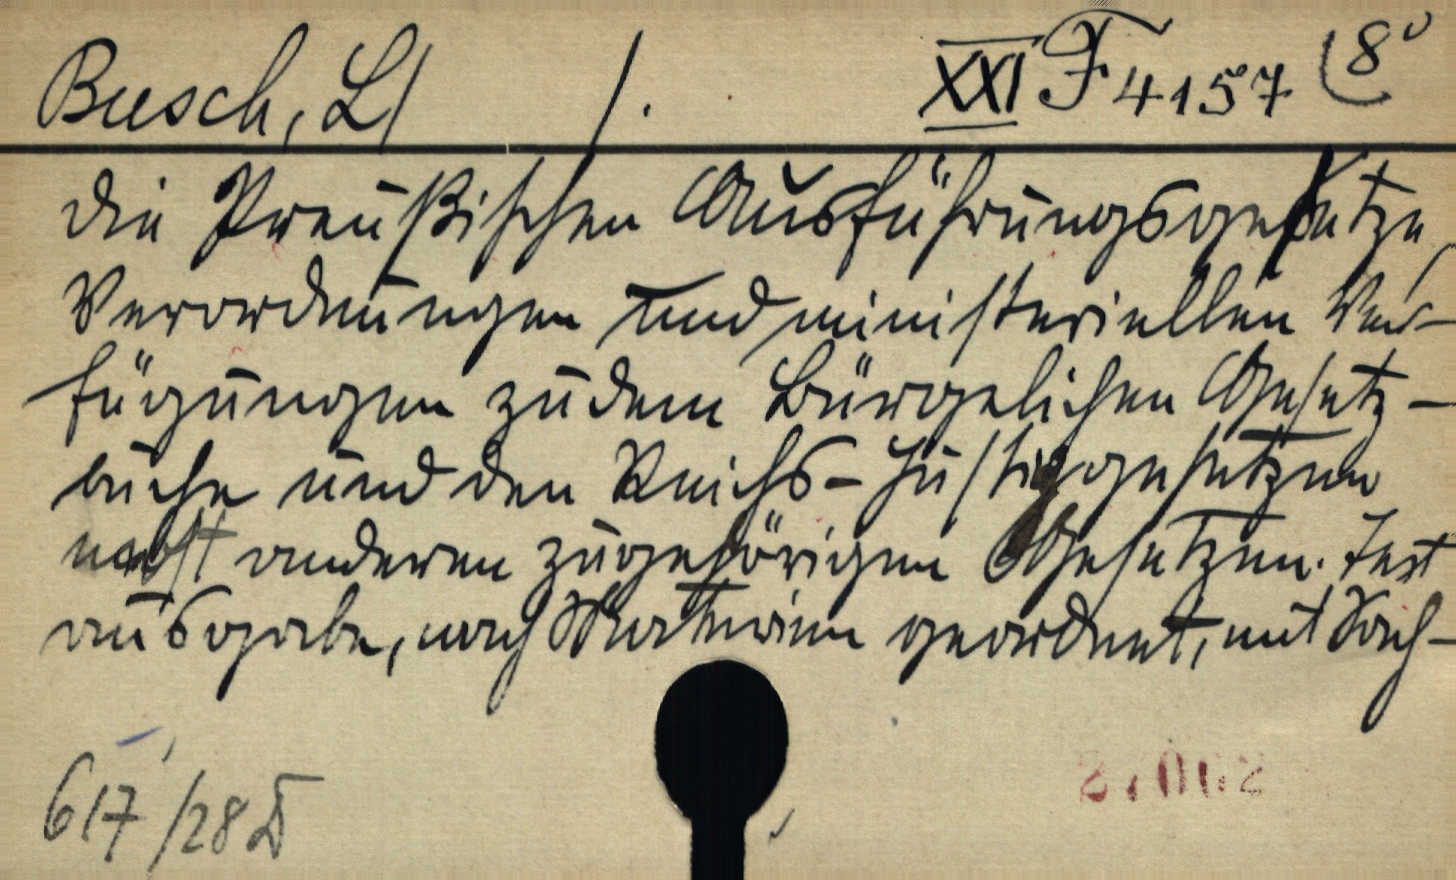 Busch, L /. XXI F 4157 8°
Die Preußischen Ausführungsgesetze,
Verordnungen und ministeriellen Ver-
fügungen zu dem Bürgerlichen Gesetz-
buche und den Reichs-Justizgesetzen
nebst anderen zugehörigen Gesetzen. Text
ausgabe, nach Materien geordnet, mit Sach-
617/28 D